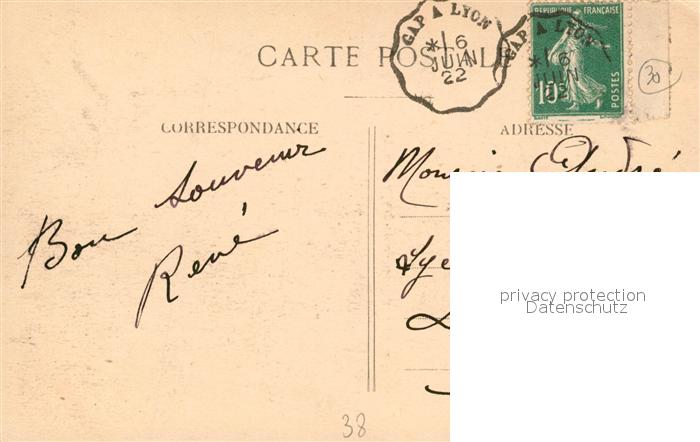 GAP A LYON
*16
JUIN
22
GAP A LYON
*16
JUIN
22
REPUBLIQUE FRANÇAISE
10
POSTES
30
CARTE POSTALE
CORRESPONDANCE
ADRESSE
Bon souvenir
René
Monsieur André
privacy protection
Datenschutz
38